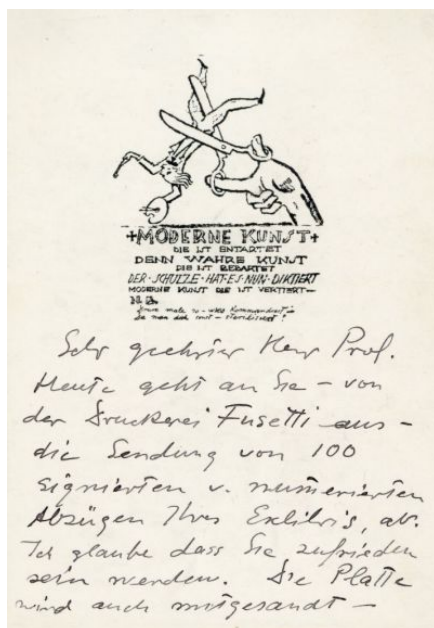 +MODERNE KUNST+
DIE IST ENTARTET
DENN WAHRE KUNST
DIE IST BEBARTET
DER·SCHULZE·HAT·ES·NUN·DIKTIERT
MODERNE KUNST DIE IST VERTIERT—
N.B.
male so - wies Kommandiert
Da man dich sonst - sterilisiert!
Sehr geehrter Herr Prof.
Heute geht an Sie – von
der Druckerei Fusetti aus –
die Sendung von 100
signierten u. numerierten
Abzügen Ihres Exlibris, ab.
Ich glaube dass Sie zufrieden
sein werden. Die Platte
wird auch mitgesandt –